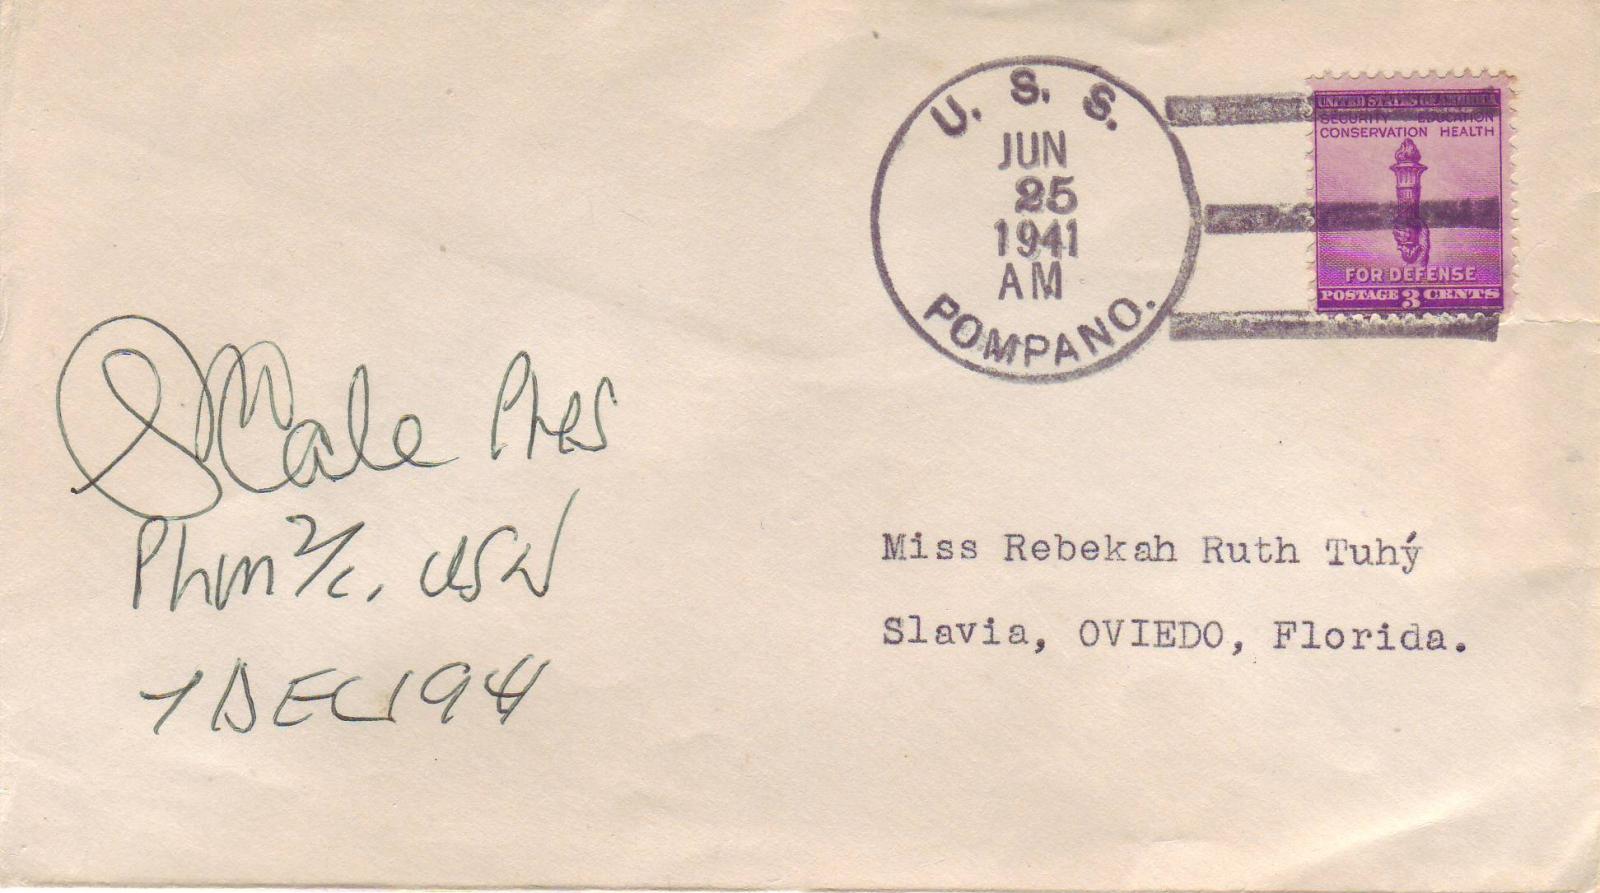 U. S. S.
JUN
25
1941
AM
POMPANO.
UNITED STATES OF AMERICA
SECURITY EDUCATION
CONSERVATION HEALTH
FOR DEFENSE
POSTAGE 3 CENTS
Phm 2/c, USN
7 DEC 1941
Miss Rebekah Ruth Tuhý
Slavia, OVIEDO, Florida.